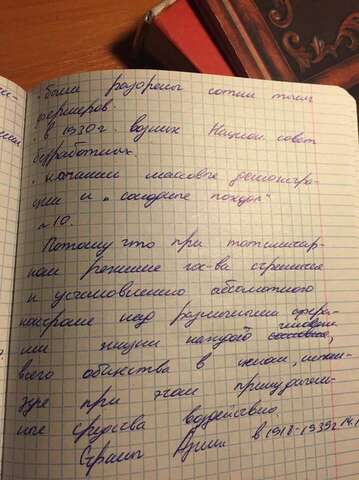 · были разорены сотни тысяч
фермеров.
· в 1930г. возник Национ. совет
безработных.
· начались массовые демонстра-
ции и „голодные походы"
№10.
Потому что при тоталитар-
ном режиме гос-ва стремление
к установлению абсолютного
контроля над различными сфера-
ми жизни каждого человека,
всего общества в целом, исполь-
зуя при этом принудитель-
ные средства воздействия.
Страны Азии в 1918-1939г.